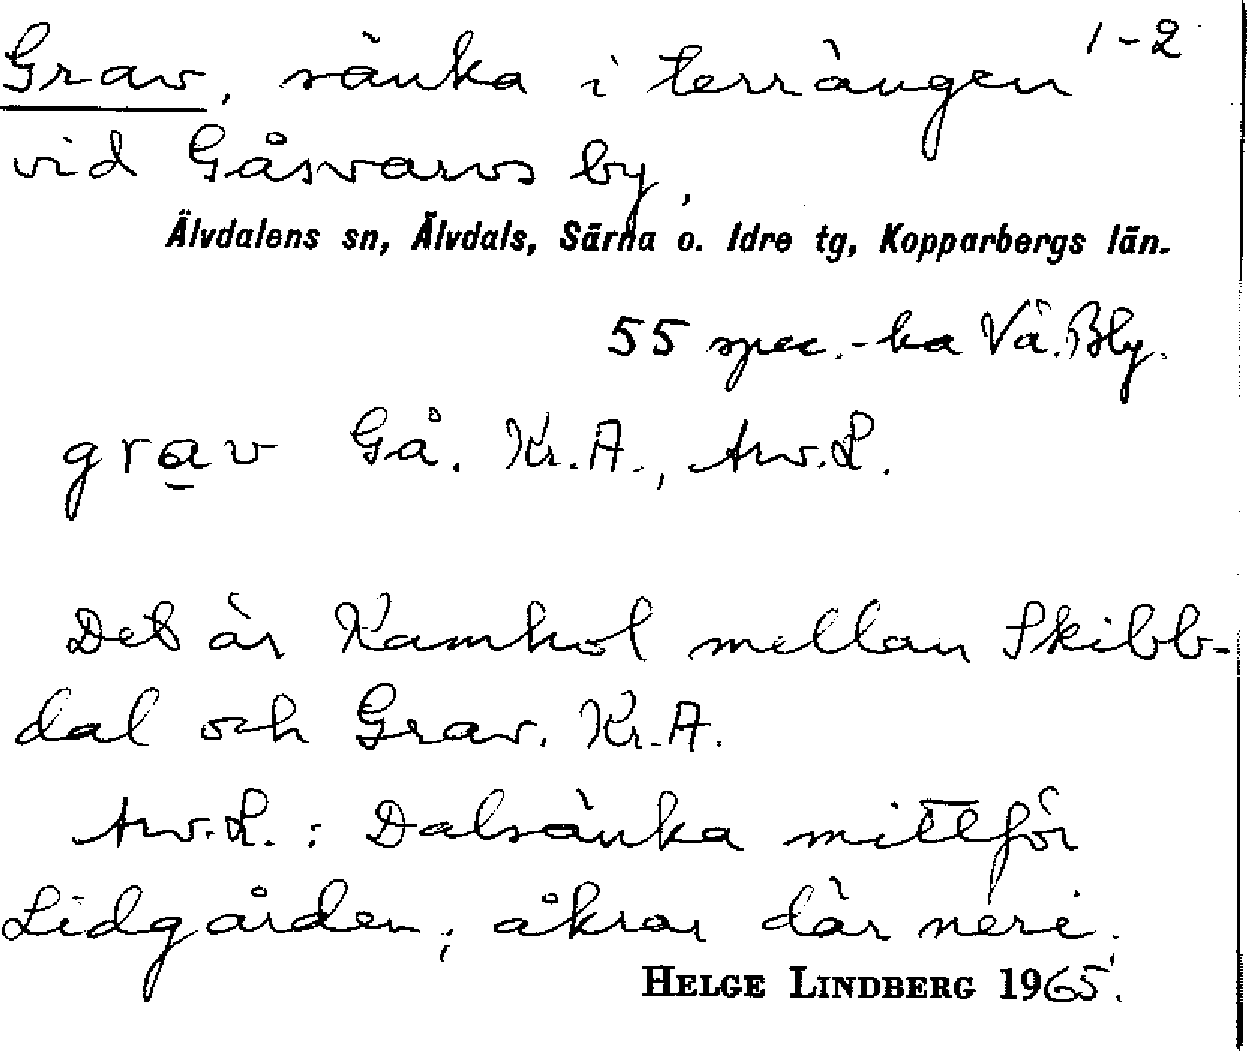 Grav, sänka i terrängen 1-2
vid Gåsvarvs by,
Älvdalens sn, Älvdals, Särna o. Idre tg, Kopparbergs län.
55 spec.-ka Vä. Bly.
grav Gå. Kr. A., Aw. L.
Det är Kamhol mellan Skibb-
dal och Grav. Kr. A.
Aw. L. : Dalsänka mittför
Lidgården; åkrar där neri.
HELGE LINDBERG 1965.